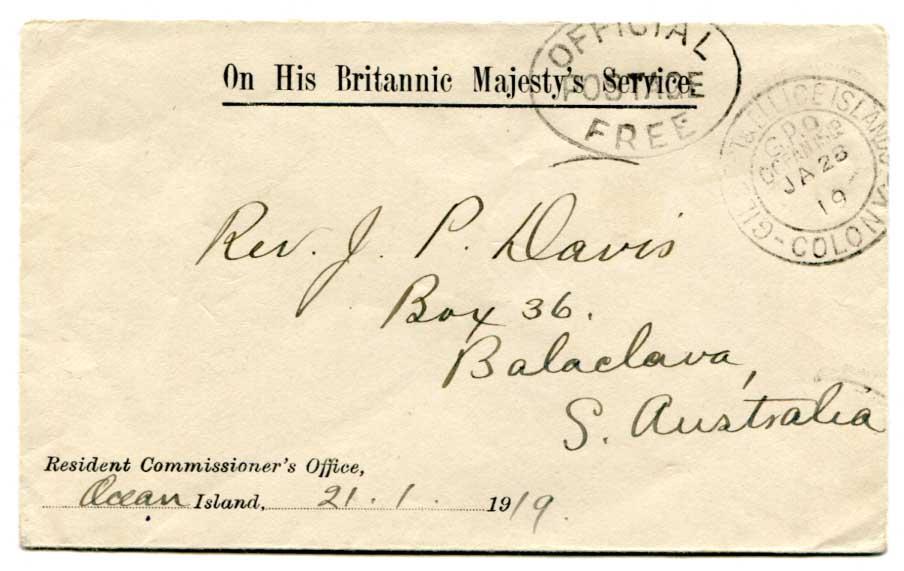 OFFICIAL
POSTAGE
FREE
On His Britannic Majesty's Service.
& ELLICE ISLANDS
COLONY
G.P.O.
OCEAN IS.
JA 23
19
Rev. J. P. Davis
Box 36.
Balaclava,
S. Australia
Resident Commissioner's Office,
Ocean Island, 21.1. 1919.